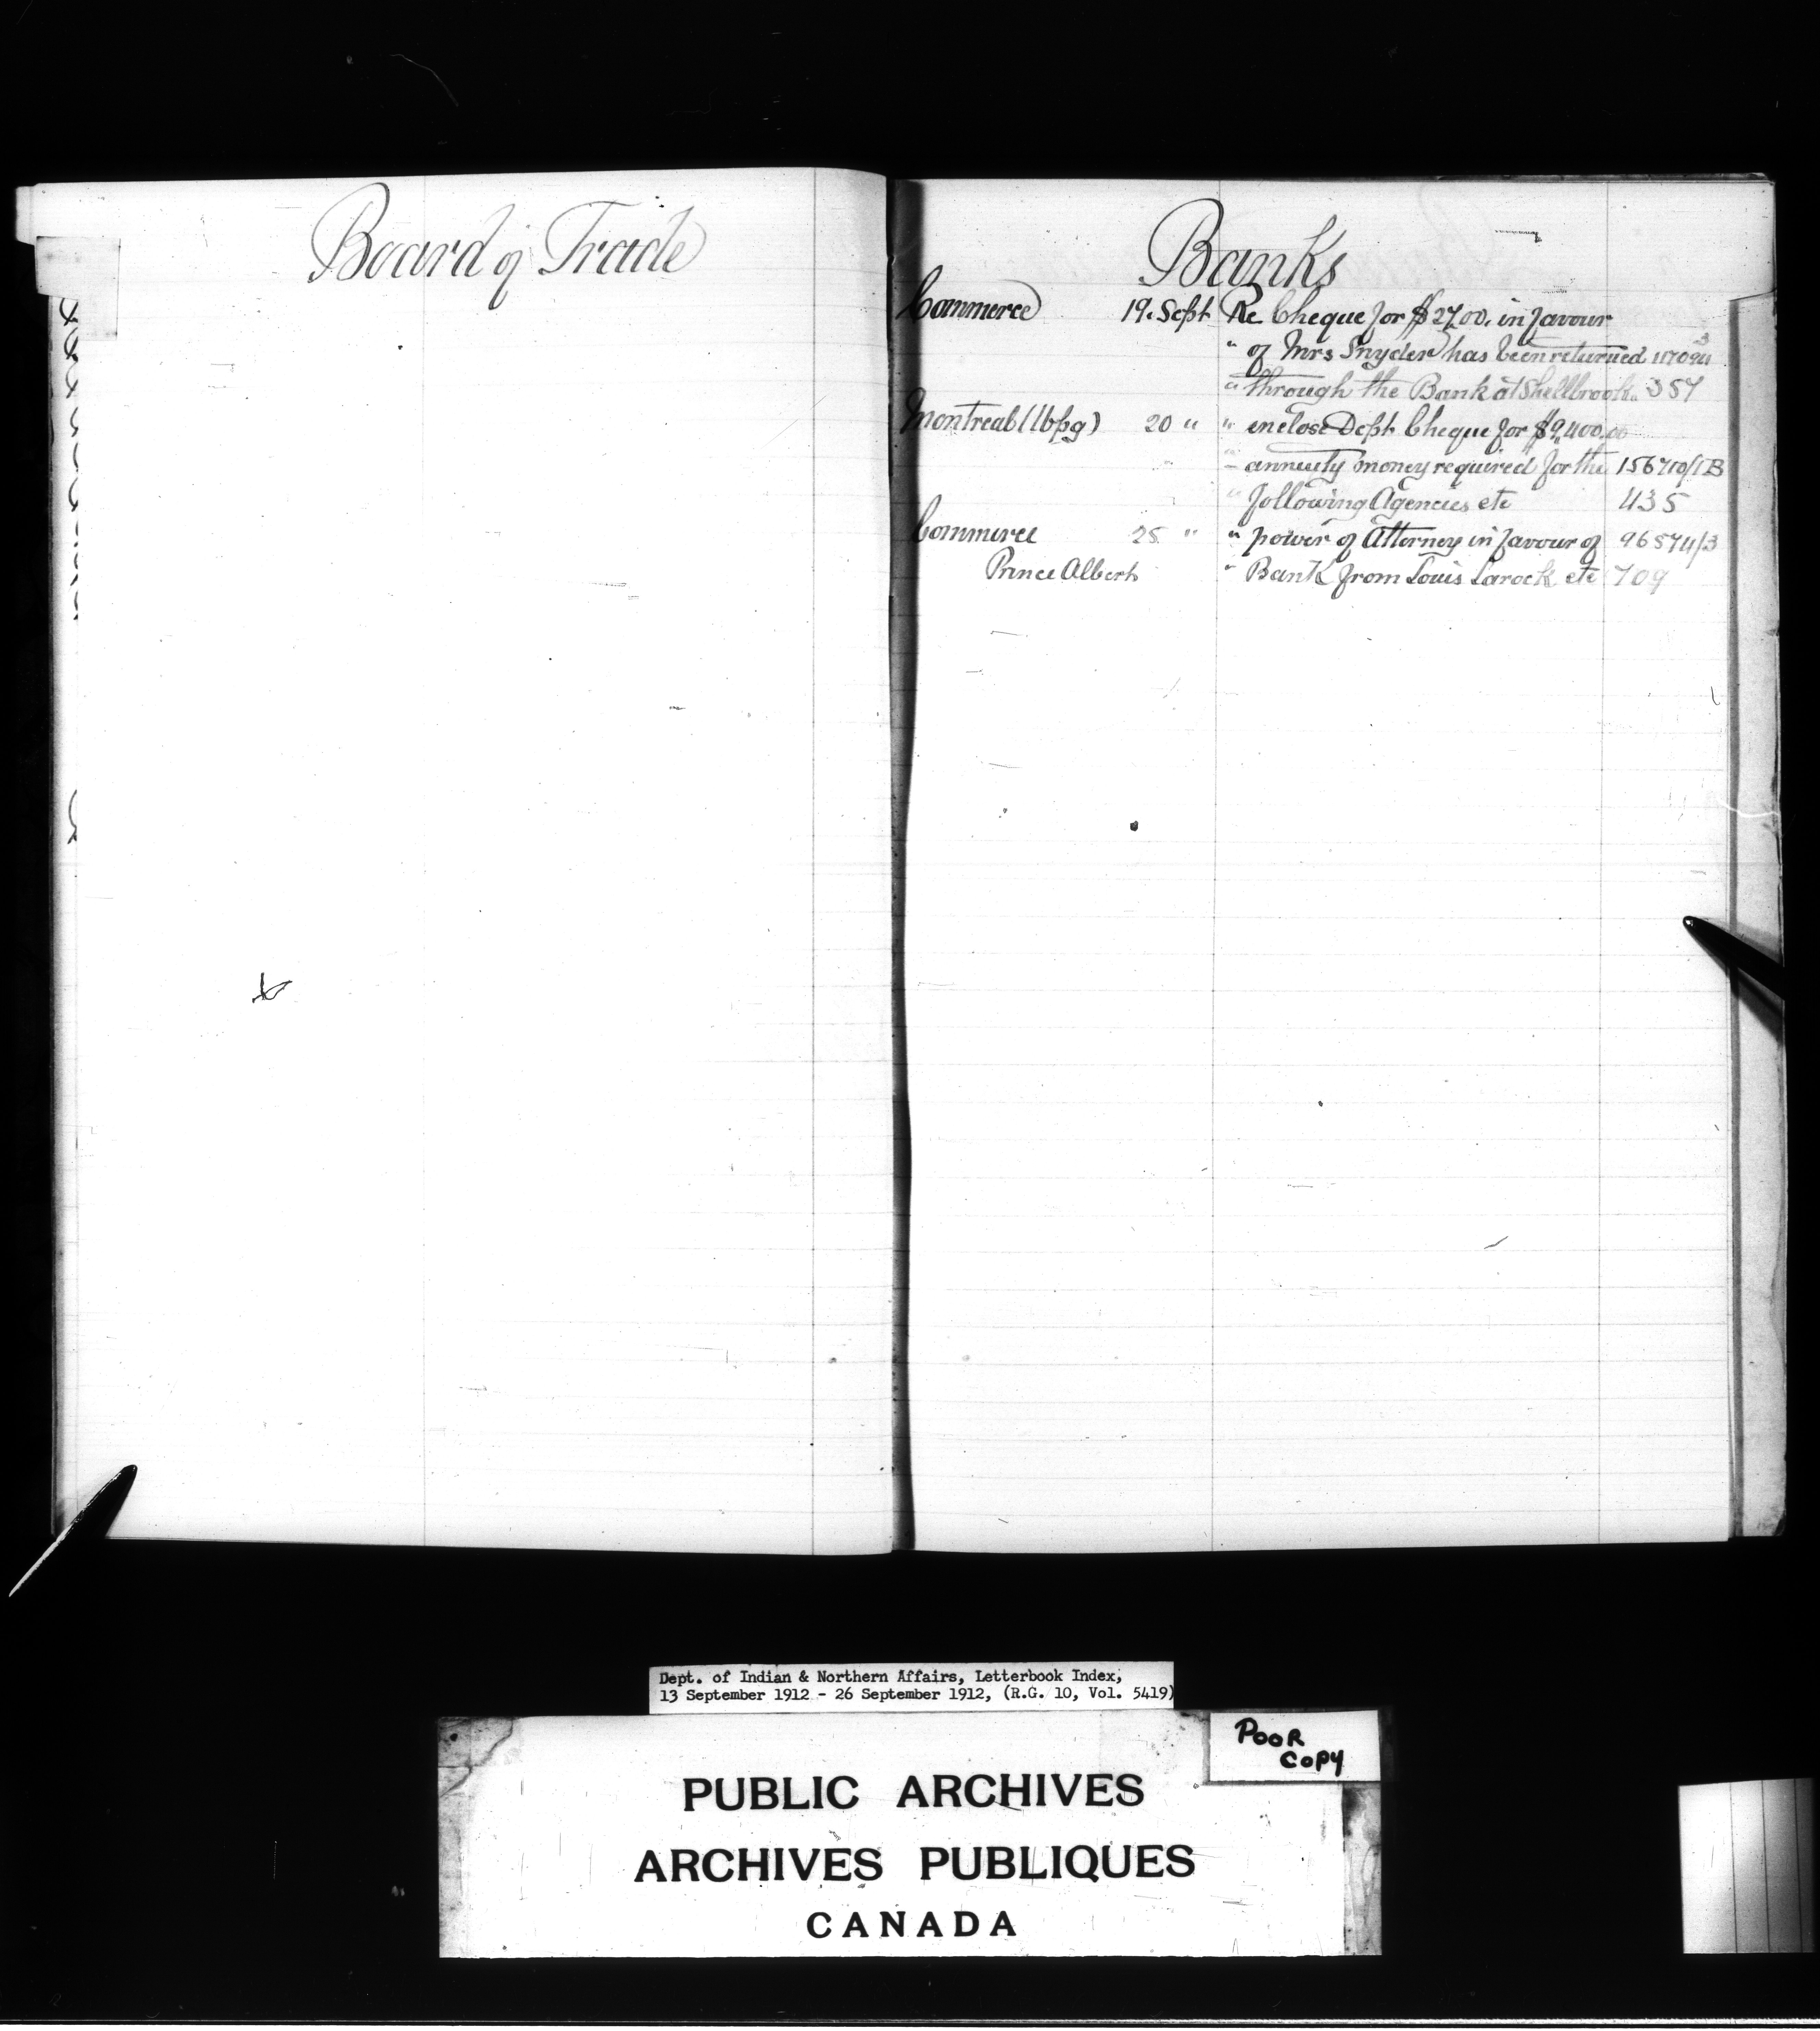 Board of Trade
Banks
Commerce 19. Sept Re Cheque for $27.00. in favour
" of Mrs Snyder has been returned
" through the Bank at Shellbrook. 357
Montreal (Wpg) 20 " " enclose Dept Cheque for $9,400.00
" annuity money required for the 156710/1B
" following Agencies etc 435
Commerce 25 " " power of Attorney in favour of 96574/3
Prince Albert " Bank from Louis Larock etc 709
Dept. of Indian & Northern Affairs, Letterbook Index,
13 September 1912 - 26 September 1912, (R.G. 10, Vol. 5419)
POOR
COPY
PUBLIC ARCHIVES
ARCHIVES PUBLIQUES
CANADA